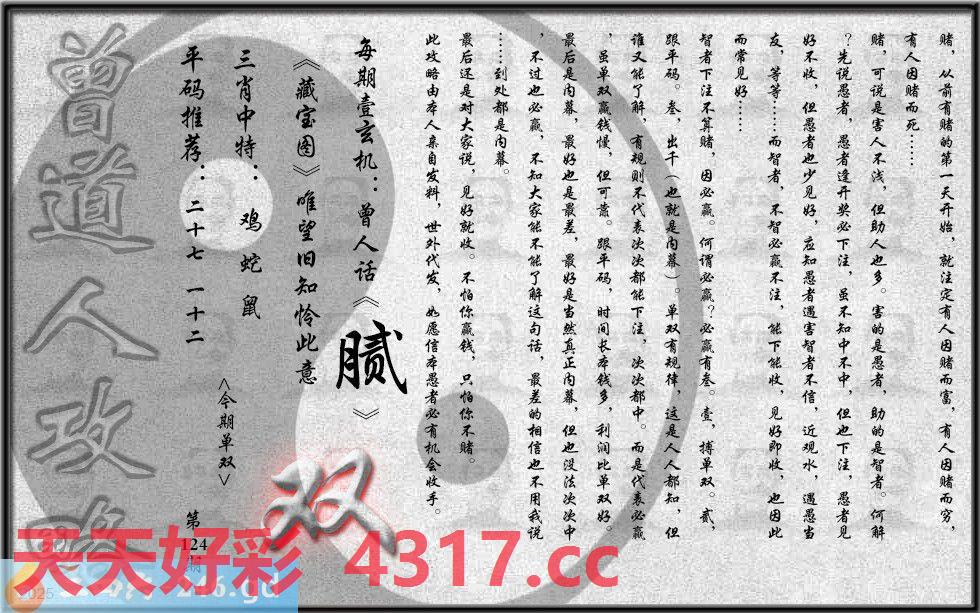 赌，从前有赌的第一天开始，就注定有人因赌而富，有人因赌而穷，
有人因赌而死……
赌，可说是害人不浅，但助人也多。害的是愚者，助的是智者。何解
？先说愚者，愚者逢开奖必下注，虽不知中不中，但也下注，愚者见
好不收，但愚者也少见好，应知愚者遇害智者不信，近观水，遇愚当
友，等等……而智者，不智必赢不注，能下能收，见好即收，也因此
而常见好……
智者下注不算赌，因必赢。何谓必赢？必赢有叁。壹，搏单双。贰，
跟平码。叁，出千（也就是内幕）。单双有规律，这是人人都知，但
谁又能了解，有规则不代表次次都能下注，次次都中。而是代表必赢
，虽单双赢钱慢，但可靠。跟平码，时间长本钱多，利润比单双好。
最后是内幕，最好也是最差，最好是当然真正内幕，但也没法次次中
，不过也必赢，不知大家能不能了解这句话，最差的相信也不用我说
……到处都是内幕。
最后还是对大家说，见好就收。不怕你赢钱，只怕你不赌。
此攻略由本人亲自发料，世外代发，如愿信本愚者必有机会收手。
每期壹玄机：曾人话《腻》
《藏宝图》唯望旧知怜此意
三肖中特：鸡 蛇 鼠
平码推荐：二十七 一十二
<今期单双>
双
第
124
期
曾道人攻略
天天好彩 4317.cc
2025